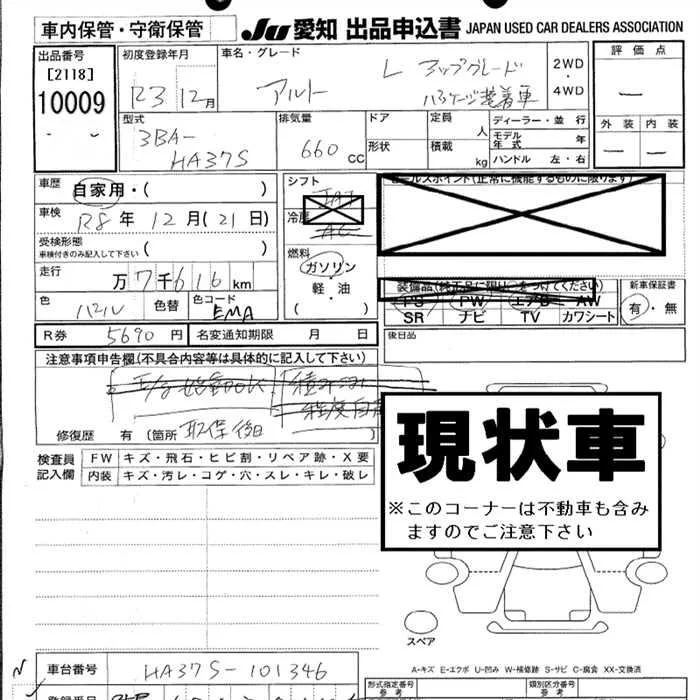 車内保管・守衛保管 Ju 愛知 出品申込書 JAPAN USED CAR DEALERS ASSOCIATION
出品番号
[2118]
10009
初度登録年月
R3 12月
車名・グレード
アルト L アップグレード
パッケージ装着車
2WD
・
4WD
評価点
外装 内装
型式
3BA-
HA37S
排気量
660 CC
ドア
形状
定員 人
積載 kg
ディーラー・並行
モデル年式 年
ハンドル 左・右
車歴 自家用・( )
車検 R8年 12月(21日)
受検形態
車検付きのみ記入して下さい ( )
走行 万7千616km
色 パール 色替 色コード EMA
シフト
IAT
冷房
AC
燃料
ガソリン
・
軽・油
( )
セールスポイント(正常に機能するものに限ります)
PS PW エアB AW
SR ナビ TV カワシート
新車保証書
有・無
後日品
R券 5690円 名変通知期限 月 日
注意事項申告欄(不具合内容等は具体的に記入して下さい)
修復歴 有 (箇所 取保後日 )
現状車
※このコーナーは不動車も含み
ますのでご注意下さい
検査員
記入欄
FW キズ・飛石・ヒビ割・リペア跡・X要
内装 キズ・汚レ・コゲ・穴・スレ・キレ・破レ
スペア
A-キズ E-エクボ U-凹み W-補修跡 S-サビ C-腐食 XX-交換済
N
車台番号 HA37S-101346
形式指定番号
参考
類別区分番号
参考
登録番号